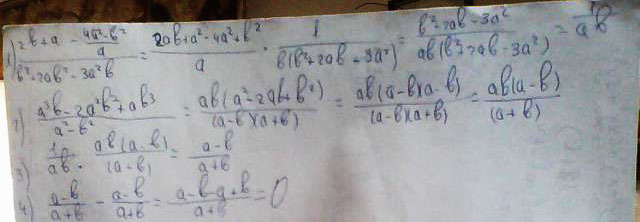 1) \frac{2b+a-\frac{4a^2-b^2}{a}}{b^3+2ab^2-3a^2b} = \frac{2ab+a^2-4a^2+b^2}{a} \cdot \frac{1}{b(b^2+2ab-3a^2)} = \frac{b^2+2ab-3a^2}{ab(b^2+2ab-3a^2)} = \frac{1}{ab}
2) \frac{a^3b-2a^2b^2+ab^3}{a^2-b^2} = \frac{ab(a^2-2ab+b^2)}{(a-b)(a+b)} = \frac{ab(a-b)(a-b)}{(a-b)(a+b)} = \frac{ab(a-b)}{(a+b)}
3) \frac{1}{ab} \cdot \frac{ab(a-b)}{(a+b)} = \frac{a-b}{a+b}
4) \frac{a-b}{a+b} - \frac{a-b}{a+b} = \frac{a-b-a+b}{a+b} = 0